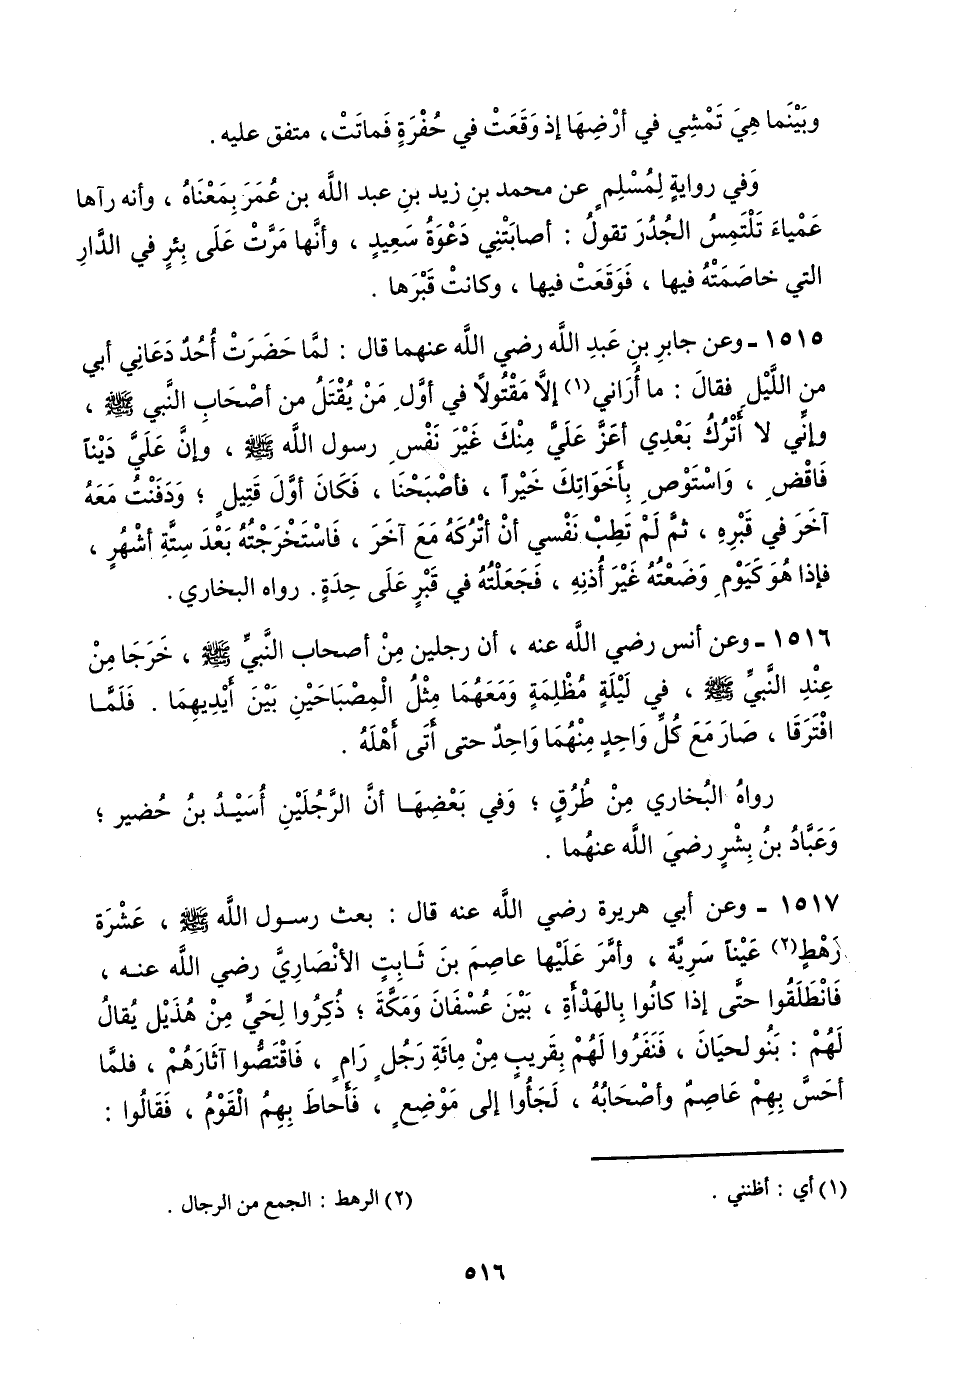 وبَيْنَما هِيَ تَمْشِي في أرْضِهَا إذ وَقَعَتْ في حُفْرَةٍ فَماتَتْ، متفق عليه .
وَفي روايةٍ لِمُسْلِمٍ عن محمد بنِ زيد بنِ عبد اللَّه بن عُمَرَ بِمَعْنَاهُ ، وأنه رآها
عَمْياءَ تَلْتَمِسُ الجُدُرَ تقولُ : أصابَتْنِي دَعْوَةُ سَعِيدٍ ، وأنَّها مَرَّتْ عَلَى بِئرٍ في الدَّارِ
التي خاصَمَتْهُ فيها ، فَوَقَعَتْ فيها ، وكانتْ قَبْرَها .
١٥١٥ ـ وعن جابرِ بنِ عَبدِ اللَّه رضي اللَّه عنهما قال : لمَّا حَضَرَتْ أُحُدٌ دَعَانِي أبي
من اللَّيْلِ فقالَ : ما أُرَاني(١) إلَّا مَقْتُولًا في أوَّلِ مَنْ يُقْتَلُ من أصْحَابِ النَّبي ﷺ ،
وإنِّي لا أَتْرُكُ بَعْدِي أعَزَّ عَلَيَّ مِنْكَ غَيْرَ نَفْسِ رسول اللَّه ﷺ ، وإنَّ عَلَيَّ دَيْناً
فَاقْضِ ، وَاسْتَوْصِ بِأَخَوَاتِكَ خَيْراً ، فأصْبَحْنَا ، فَكَانَ أوَّلَ قَتِيلٍ ؛ وَدَفَنْتُ مَعَهُ
آخَرَ في قَبْرِهِ ، ثمَّ لَمْ تَطِبْ نَفْسي أنْ أتْرُكَهُ مَعَ آخَرَ ، فَاسْتَخْرَجْتُهُ بَعْدَ سِتَّةِ أشْهُرٍ ،
فإذا هُوَ كَيَوْمِ وَضَعْتُهُ غَيْرَ أُذنِهِ ، فَجَعَلْتُهُ في قَبْرٍ عَلَى حِدَةٍ. رواه البخاري .
١٥١٦ ـ وعن أنس رضي اللَّه عنه ، أن رجلين مِنْ أصحاب النَّبيِّ ﷺ ، خَرَجَا مِنْ
عِنْدِ النَّبيِّ ﷺ ، في لَيْلَةٍ مُظْلِمَةٍ وَمَعَهُمَا مِثْلُ الْمِصْبَاحَيْنِ بَيْنَ أَيْدِيهِمَا . فَلَمَّا
افْتَرَقَا ، صَارَ مَعَ كُلِّ وَاحِدٍ مِنْهُمَا وَاحِدٌ حتى أتَى أهْلَهُ .
رواهُ البُخاري مِنْ طُرُقٍ ؛ وَفي بَعْضِهَا أنَّ الرَّجُلَيْنِ أُسَيْدُ بنُ حُضير ؛
وَعَبَّادُ بنُ بِشْرٍ رضيَ اللَّه عنهُما .
١٥١٧ ـ وعن أبي هريرة رضي اللَّه عنه قال : بعث رسول اللَّه ﷺ ، عَشْرَة
رَهْطٍ(٢) عَيْناً سَرِيَّة ، وأمَّرَ عَلَيْها عاصِمَ بنَ ثَابِتٍ الأنْصَارِيَّ رضي اللَّه عنه ،
فَانْطَلَقُوا حتَّى إذا كانُوا بِالهَدْأَةِ ، بَيْنَ عُسْفَانَ وَمَكَّةَ ؛ ذُكِرُوا لِحَيٍّ مِنْ هُذَيْل يُقالُ
لَهُمْ : بَنُو لحيَانَ ، فَنَفَرُوا لَهُمْ بِقَريبٍ مِنْ مائَةِ رَجُلٍ رَامٍ ، فَاقْتَصُّوا آثَارَهُمْ ، فلمَّا
أحَسَّ بِهِمْ عَاصِمٌ وأصْحَابُهُ ، لَجَأُوا إلى مَوْضِعٍ ، فَأَحاطَ بِهِمُ الْقَوْمُ ، فَقَالُوا :
(١) أي : أظنني .
(٢) الرهط : الجمع من الرجال .
٥١٦